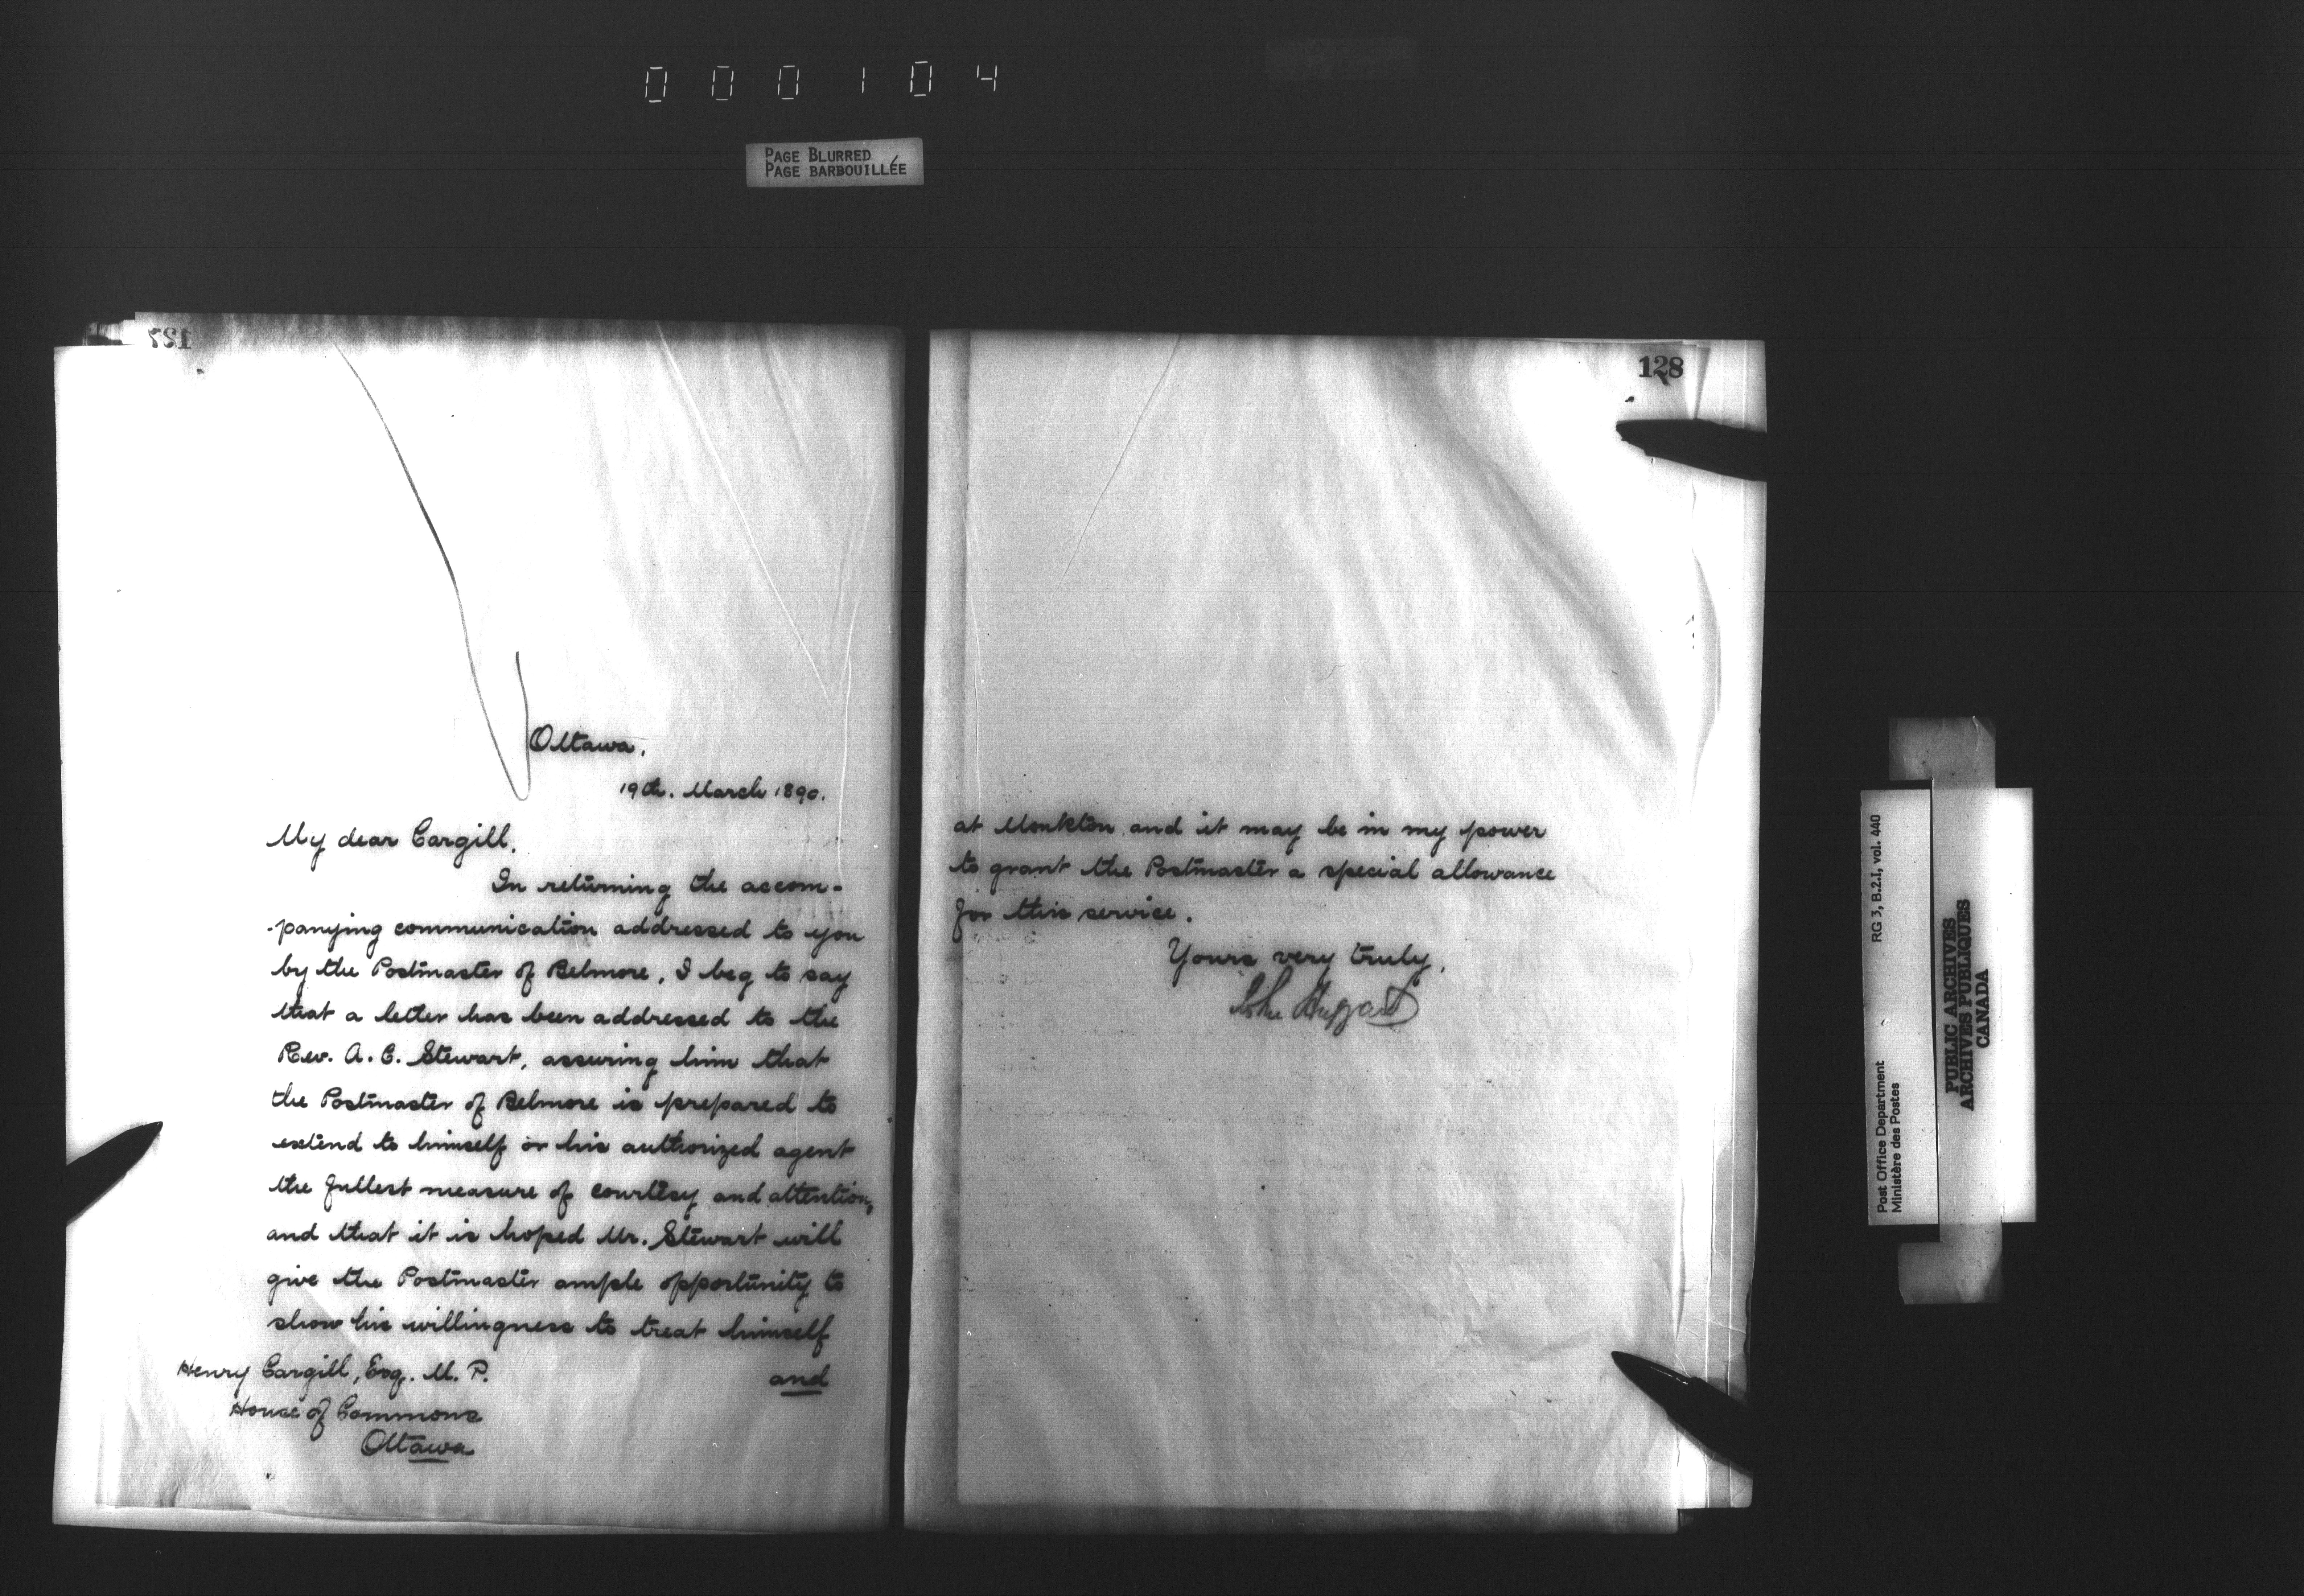 000104
PAGE BLURRED
PAGE BARBOUILLÉE
127
Ottawa,
19th. March 1890.
My dear Cargill,
In returning the accom-
-panying communication addressed to you
by the Postmaster of Belmore, I beg to say
that a letter has been addressed to the
Rev. A. C. Stewart, assuring him that
the Postmaster of Belmore is prepared to
extend to himself or his authorized agent
the fullest measure of courtesy and attention,
and that it is hoped Mr. Stewart will
give the Postmaster ample opportunity to
show his willingness to treat himself
and
Henry Cargill, Esq. M. P.
House of Commons
Ottawa
128
at Monkton and it may be in my power
to grant the Postmaster a special allowance
for this service.
Yours very truly,
John Haggart
Post Office Department
Ministère des Postes
RG 3, B.2.I, vol. 440
PUBLIC ARCHIVES
ARCHIVES PUBLIQUES
CANADA